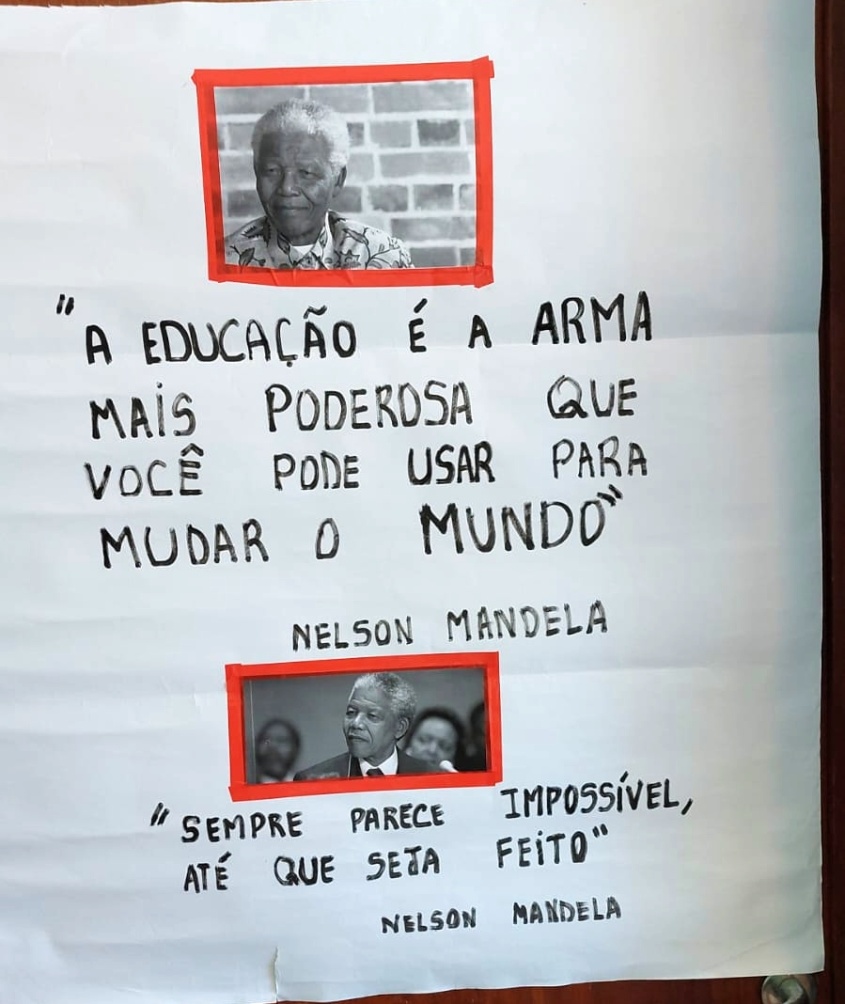 "A EDUCAÇÃO É A ARMA
MAIS PODEROSA QUE
VOCÊ PODE USAR PARA
MUDAR O MUNDO"
NELSON MANDELA
"SEMPRE PARECE IMPOSSÍVEL,
ATÉ QUE SEJA FEITO"
NELSON MANDELA